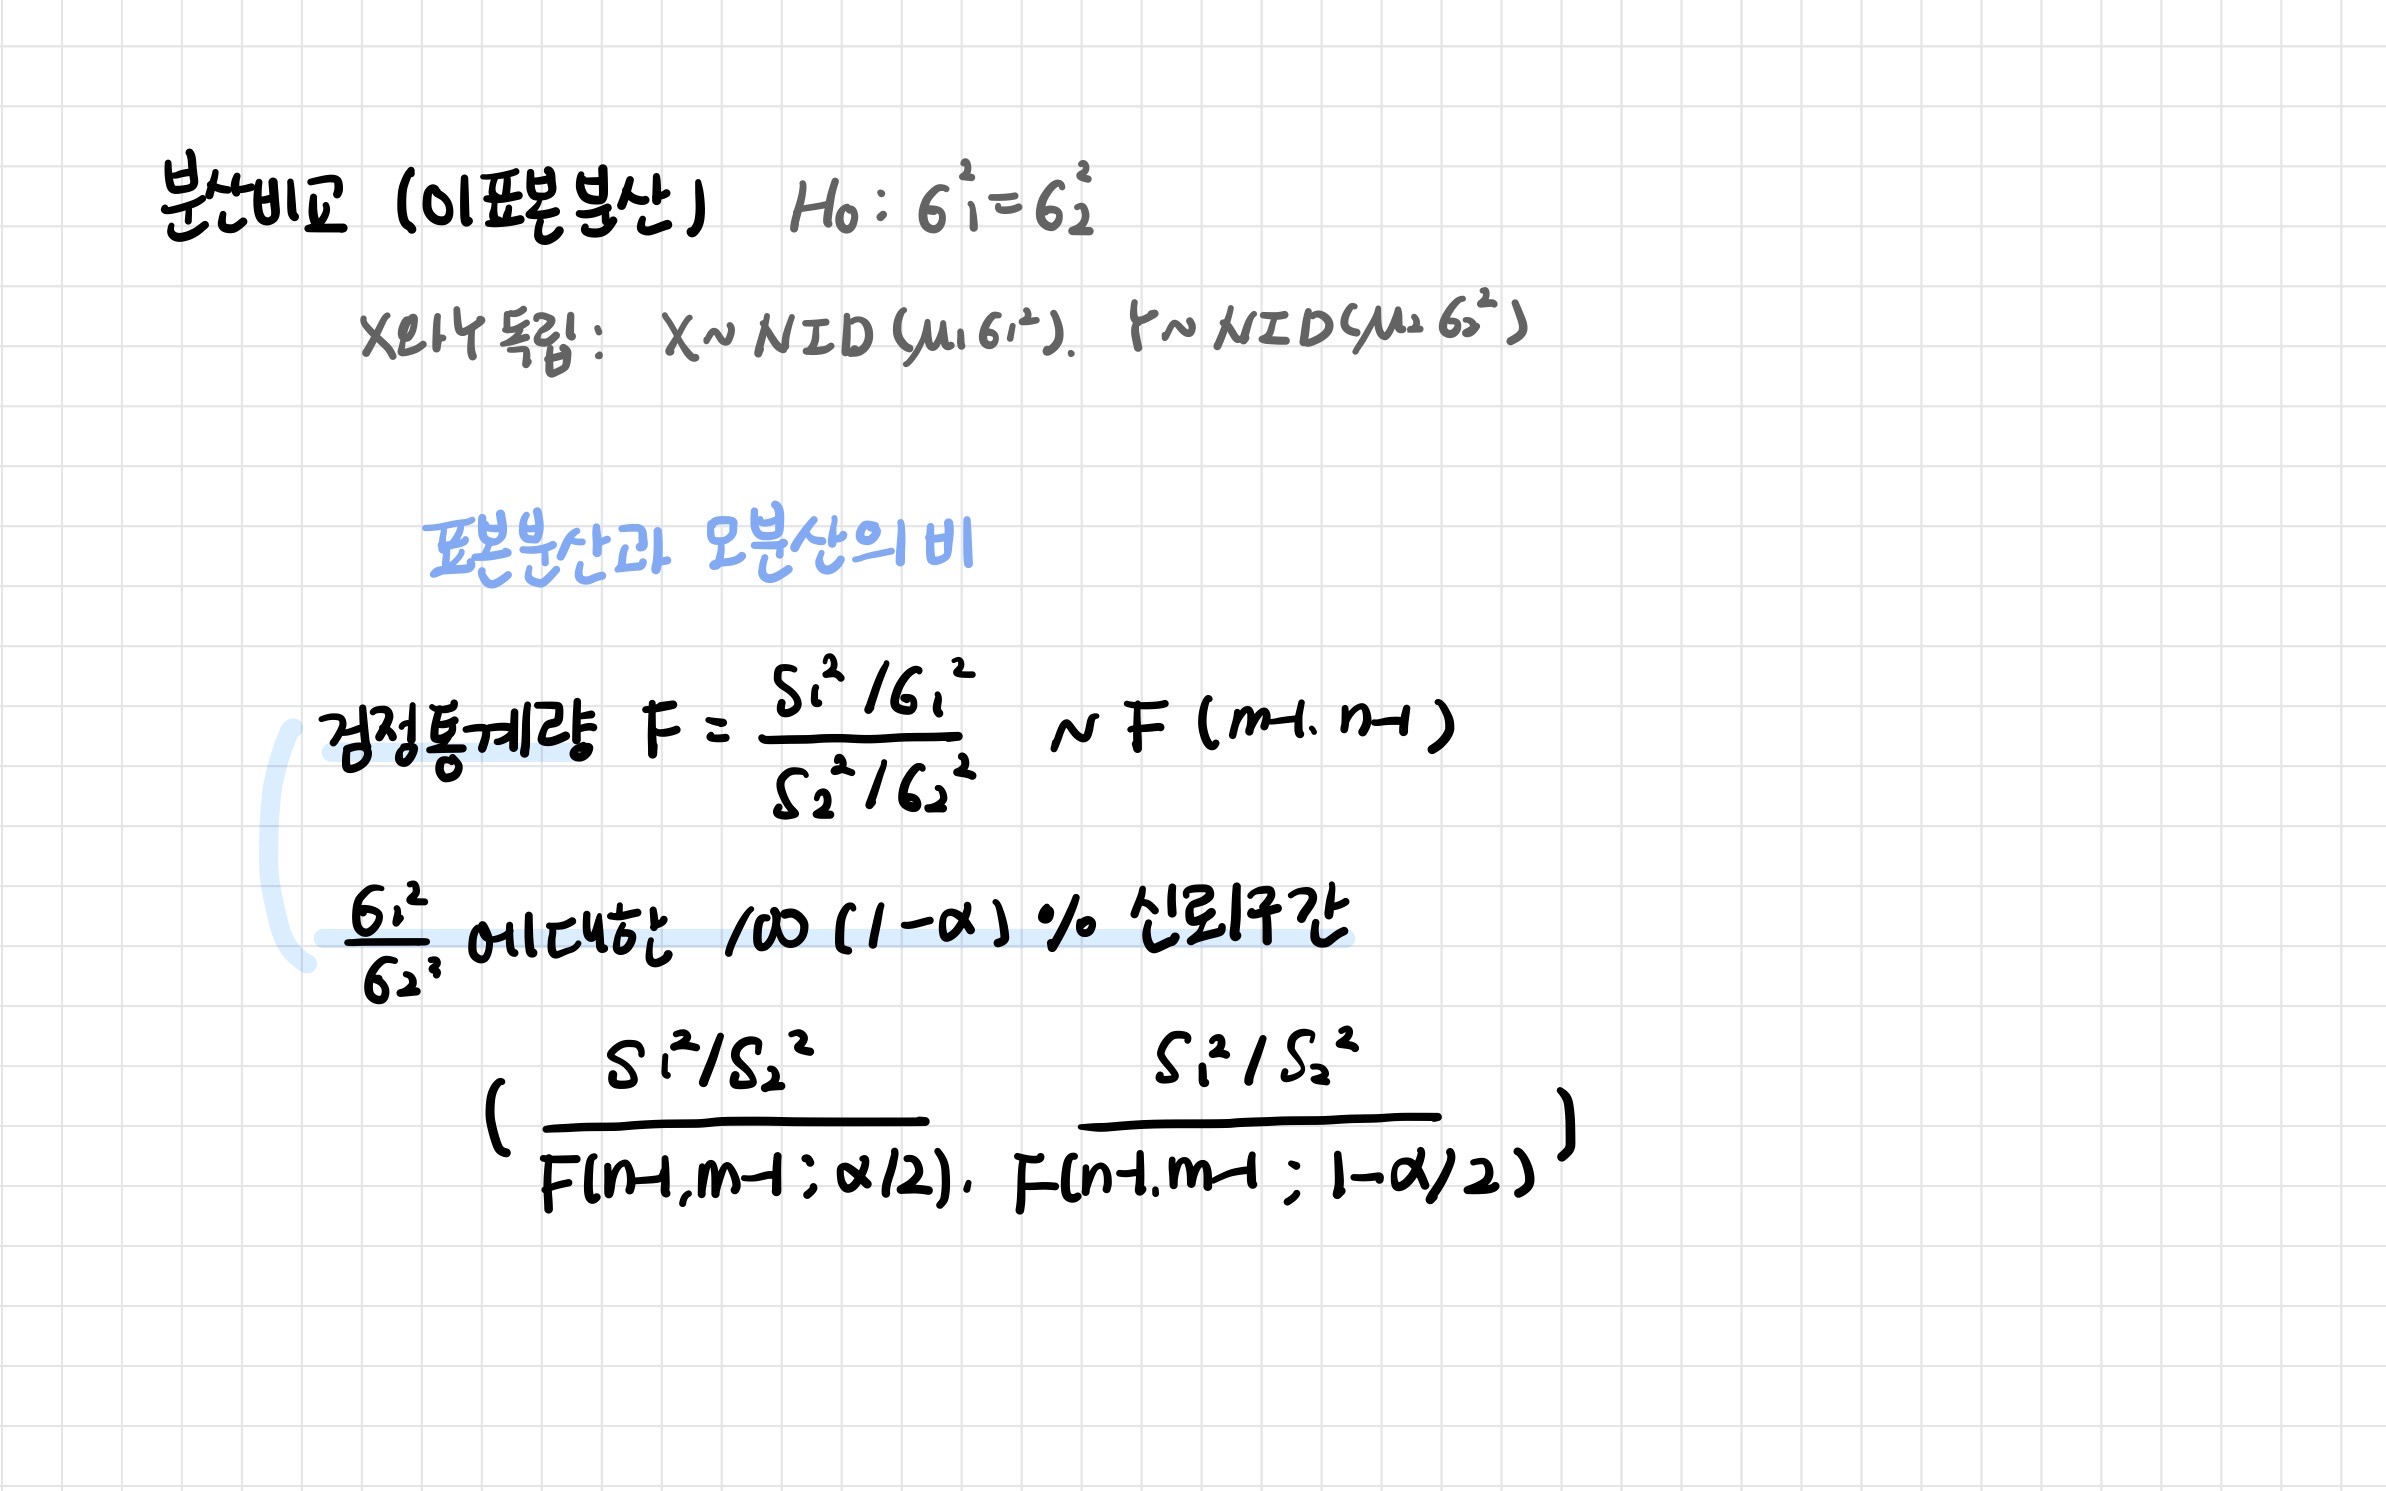 분산비교 (이표본분산) H₀: σ₁²=σ₂²
X와Y 독립: X~NID(μ₁ σ₁²). Y~NID(μ₂ σ₂²)
표본분산과 모분산의 비
검정통계량 F = (S₁²/σ₁²)/(S₂²/σ₂²) ~ F (m-1. n-1)
σ₁²/σ₂² 에대한 100(1-α)% 신뢰구간
( (S₁²/S₂²)/F(n-1,m-1; α/2). (S₁²/S₂²)/F(n-1.m-1; 1-α/2) )